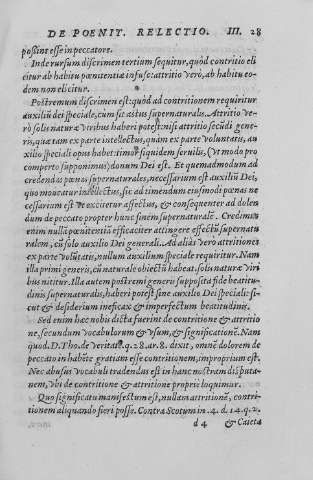 DE POENIT. RELECTIO. III. 28
possint esse in peccatore.
Inde rursum discrimen tertium sequitur, quòd contritio eli
citur ab habitu pœnitentiæ infuso: attritio verò, ab habitu eo-
dem non elicitur.
Postremum discrimen est: quòd ad contritionem requiritur
auxiliũ dei speciale, cum sit actus supernaturalis. Attritio ve-
rò solis naturæ viribus haberi potest: nisi attritio secũdi gene-
ris, quæ tam ex parte intellectus, quàm ex parte voluntatis, au
xilio speciali opus habet: timor siquidem seruilis, (vt modo pro
comperto supponimus) donum Dei est. Et quemadmodum ad
credendas pœnas supernaturales, necessarium est auxiliũ Dei,
quo moueatur intellectus, sic ad timendum eiusmodi pœnas ne
cessarium est vt excitetur affectus, & consequenter ad dolen
dum de peccato propter hunc finem supernaturalẽ. Credimus
enim nullã pœnitentiũ efficaciter attingere effectũ supernatu
ralem, cũ solo auxilio Dei generali. Ad aliàs vero attritiones
ex parte volũtatis, nullum auxilium speciale requiritur. Nam
illa primi generis, cũ naturale obiectũ habeat, solis naturæ viri
bus nititur. Illa autem postremi generis supposita fide beatitu-
dinis supernaturalis, haberi potest sine auxilio Dei speciali: si-
cut & desiderium inefficax & imperfectum beatitudinis.
Sed enim hæc nobis dicta fuerint de contritione & attritio
ne, secundum vocabulorum & vsum, & significationẽ. Nam
quod. D. Tho. de veritate. q. 28. ar. 8. dixit, omnẽ dolorem de
peccato in habẽte gratiam esse contritionem, improprium est.
Nec abusus vocabuli tradendus est in hanc nostram disputa-
nem, vbi de contritione & attritione propriè loquimur.
Quo significatu manifestum est, nullam attritionẽ, contri-
tionem aliquando fieri posse. Contra Scotum in. 4. d. 14. q. 2.
d 4 & Caieta